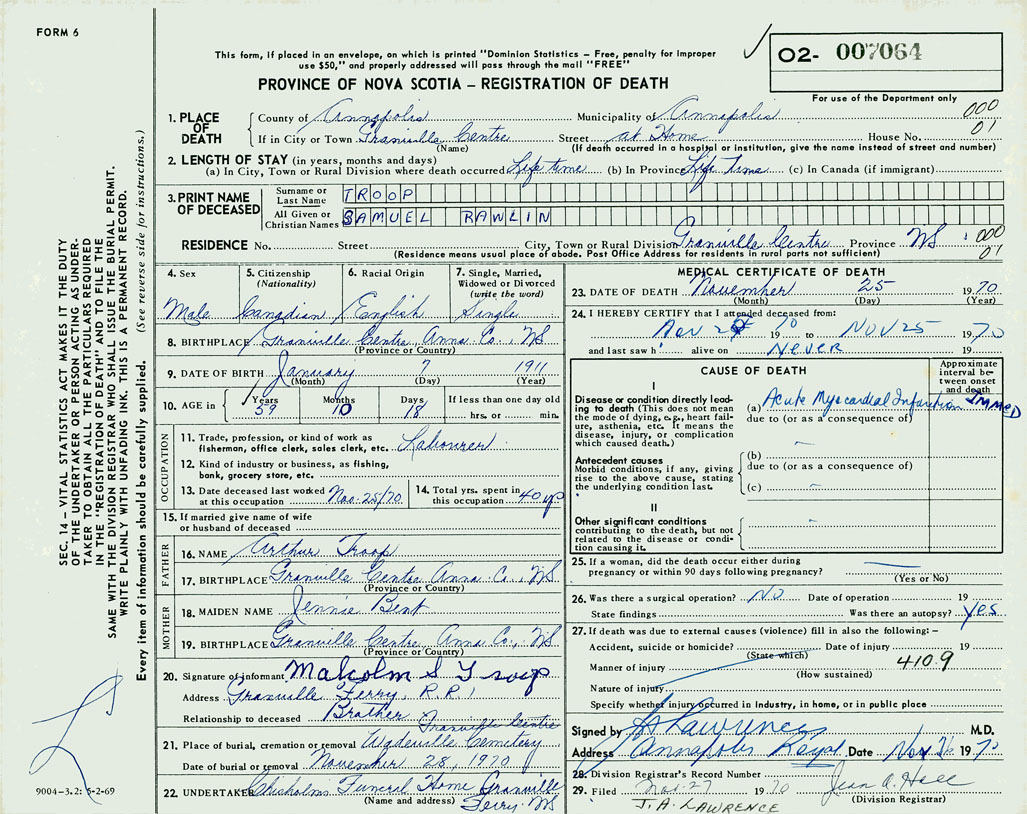 FORM 6
This form, if placed in an envelope, on which is printed "Dominion Statistics – Free, penalty for improper
use $50," and properly addressed will pass through the mail "FREE"
O2- 007064
PROVINCE OF NOVA SCOTIA – REGISTRATION OF DEATH
For use of the Department only
1. PLACE OF DEATH
County of Annapolis Municipality of Annapolis 000
If in City or Town Granville Centre Street at Home House No. 01
(Name) (If death occurred in a hospital or institution, give the name instead of street and number)
2. LENGTH OF STAY (in years, months and days)
(a) In City, Town or Rural Division where death occurred Life time (b) In Province Life Time (c) In Canada (if immigrant)
3. PRINT NAME OF DECEASED
Surname or Last Name TROOP
All Given or Christian Names SAMUEL RAWLIN
RESIDENCE No. Street City, Town or Rural Division Granville Centre Province NS 000
(Residence means usual place of abode. Post Office Address for residents in rural parts not sufficient) 01
4. Sex
Male
5. Citizenship (Nationality)
Canadian
6. Racial Origin
English
7. Single, Married, Widowed or Divorced (write the word)
Single
8. BIRTHPLACE Granville Centre, Anna Co., NS
(Province or Country)
9. DATE OF BIRTH January 7 1911
(Month) (Day) (Year)
10. AGE in Years 59 Months 10 Days 18 If less than one day old
hrs. or min.
OCCUPATION
11. Trade, profession, or kind of work as
fisherman, office clerk, sales clerk, etc. Labourer
12. Kind of industry or business, as fishing,
bank, grocery store, etc.
13. Date deceased last worked at this occupation Nov. 25/70
14. Total yrs. spent in this occupation 40 yrs
15. If married give name of wife
or husband of deceased
FATHER
16. NAME Arthur Troop
17. BIRTHPLACE Granville Centre Anna Co., NS
(Province or Country)
MOTHER
18. MAIDEN NAME Jennie Bent
19. BIRTHPLACE Granville Centre Anna Co., NS
(Province or Country)
20. Signature of informant Malcolm S Troop
Address Granville Ferry, R.R.1
Relationship to deceased Brother Granville Centre
21. Place of burial, cremation or removal Wadeville Cemetery
Date of burial or removal November 28, 1970
22. UNDERTAKER Chisholms Funeral Home Granville
(Name and address) Ferry NS
MEDICAL CERTIFICATE OF DEATH
23. DATE OF DEATH November 25 1970
(Month) (Day) (Year)
24. I HEREBY CERTIFY that I attended deceased from:
Nov 1970 to NOV 25 1970
and last saw h alive on NEVER 19
CAUSE OF DEATH
Approximate interval between onset and death
I
Disease or condition directly leading to death (This does not
mean the mode of dying, e.g., heart failure,
asthenia, etc. It means the
disease, injury, or complication
which caused death.)
(a) Acute Myocardial Infarction IMMED
due to (or as a consequence of)
Antecedent causes
Morbid conditions, if any, giving
rise to the above cause, stating
the underlying condition last.
(b)
due to (or as a consequence of)
(c)
II
Other significant conditions
contributing to the death, but not
related to the disease or condition
causing it.
25. If a woman, did the death occur either during
pregnancy or within 90 days following pregnancy?
(Yes or No)
26. Was there a surgical operation? NO Date of operation 19
State findings Was there an autopsy? Yes
27. If death was due to external causes (violence) fill in also the following: –
Accident, suicide or homicide? Date of injury 19
(State which) 410.9
Manner of injury
(How sustained)
Nature of injury
Specify whether injury occurred in industry, in home, or in public place
Signed by Lawrence M.D.
Address Annapolis Royal Date Nov 26 1970
28. Division Registrar's Record Number
29. Filed Nov. 27 1970 Jean A. Hall
J.A. LAWRENCE (Division Registrar)
SEC. 14 – VITAL STATISTICS ACT MAKES IT THE DUTY
OF THE UNDERTAKER OR PERSON ACTING AS UNDERTAKER
TO OBTAIN ALL THE PARTICULARS REQUIRED
IN THE "REGISTRATION OF DEATH" AND TO FILE THE
SAME WITH THE DIVISION REGISTRAR WHO SHALL ISSUE THE BURIAL PERMIT.
WRITE PLAINLY WITH UNFADING INK. THIS IS A PERMANENT RECORD.
Every item of information should be carefully supplied. (See reverse side for instructions.)
9004–3.2: 5-2-69